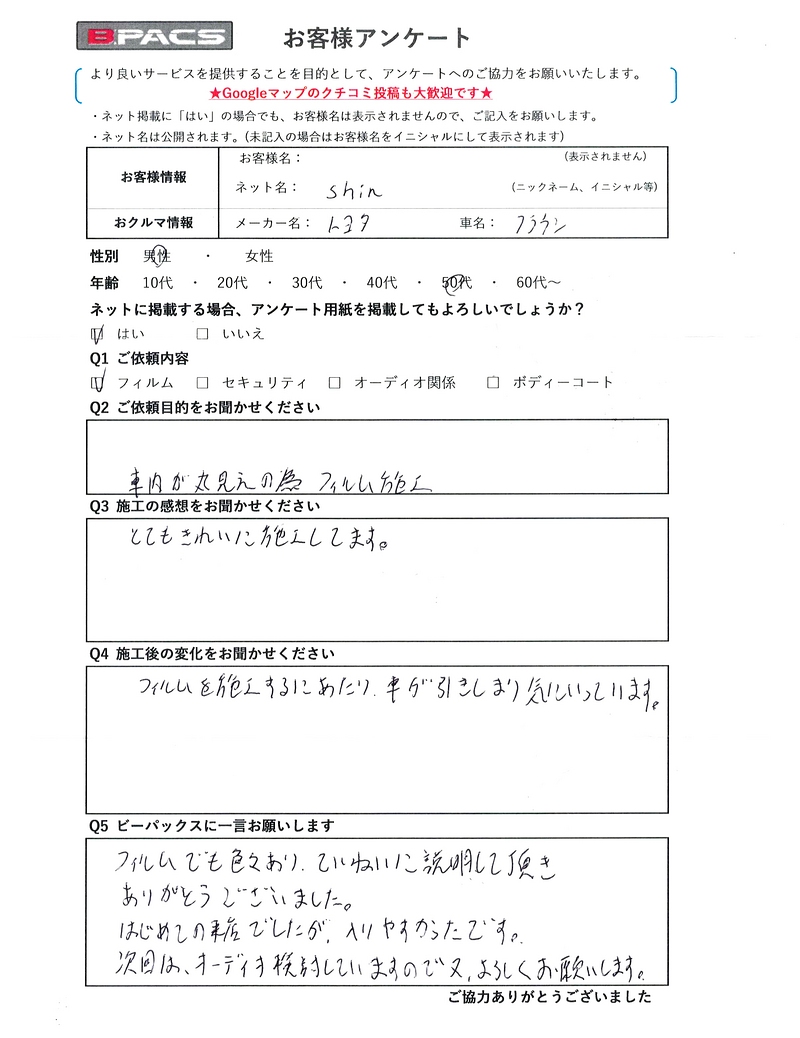 B-PACS お客様アンケート
より良いサービスを提供することを目的として、アンケートへのご協力をお願いいたします。
★Googleマップのクチコミ投稿も大歓迎です★
・ネット掲載に「はい」の場合でも、お客様名は表示されませんので、ご記入をお願いします。
・ネット名は公開されます。(未記入の場合はお客様名をイニシャルにして表示されます)
お客様情報
お客様名： (表示されません)
ネット名： shin (ニックネーム、イニシャル等)
おクルマ情報 メーカー名： トヨタ 車名： クラウン
性別 男性 ・ 女性
年齢 10代 ・ 20代 ・ 30代 ・ 40代 ・ 50代 ・ 60代～
ネットに掲載する場合、アンケート用紙を掲載してもよろしいでしょうか？
☑ はい □ いいえ
Q1 ご依頼内容
☑ フィルム □ セキュリティ □ オーディオ関係 □ ボディーコート
Q2 ご依頼目的をお聞かせください
車内が丸見えの為 フィルム施工
Q3 施工の感想をお聞かせください
とてもきれいに施工してます。
Q4 施工後の変化をお聞かせください
フィルムを施工するにあたり、車が引きしまり気にいっています。
Q5 ビーパックスに一言お願いします
フィルムでも色々あり、ていねいに説明して頂き
ありがとうございました。
はじめての来店でしたが、入りやすかったです。
次回は、オーディオ検討していますので又、よろしくお願いします。
ご協力ありがとうございました